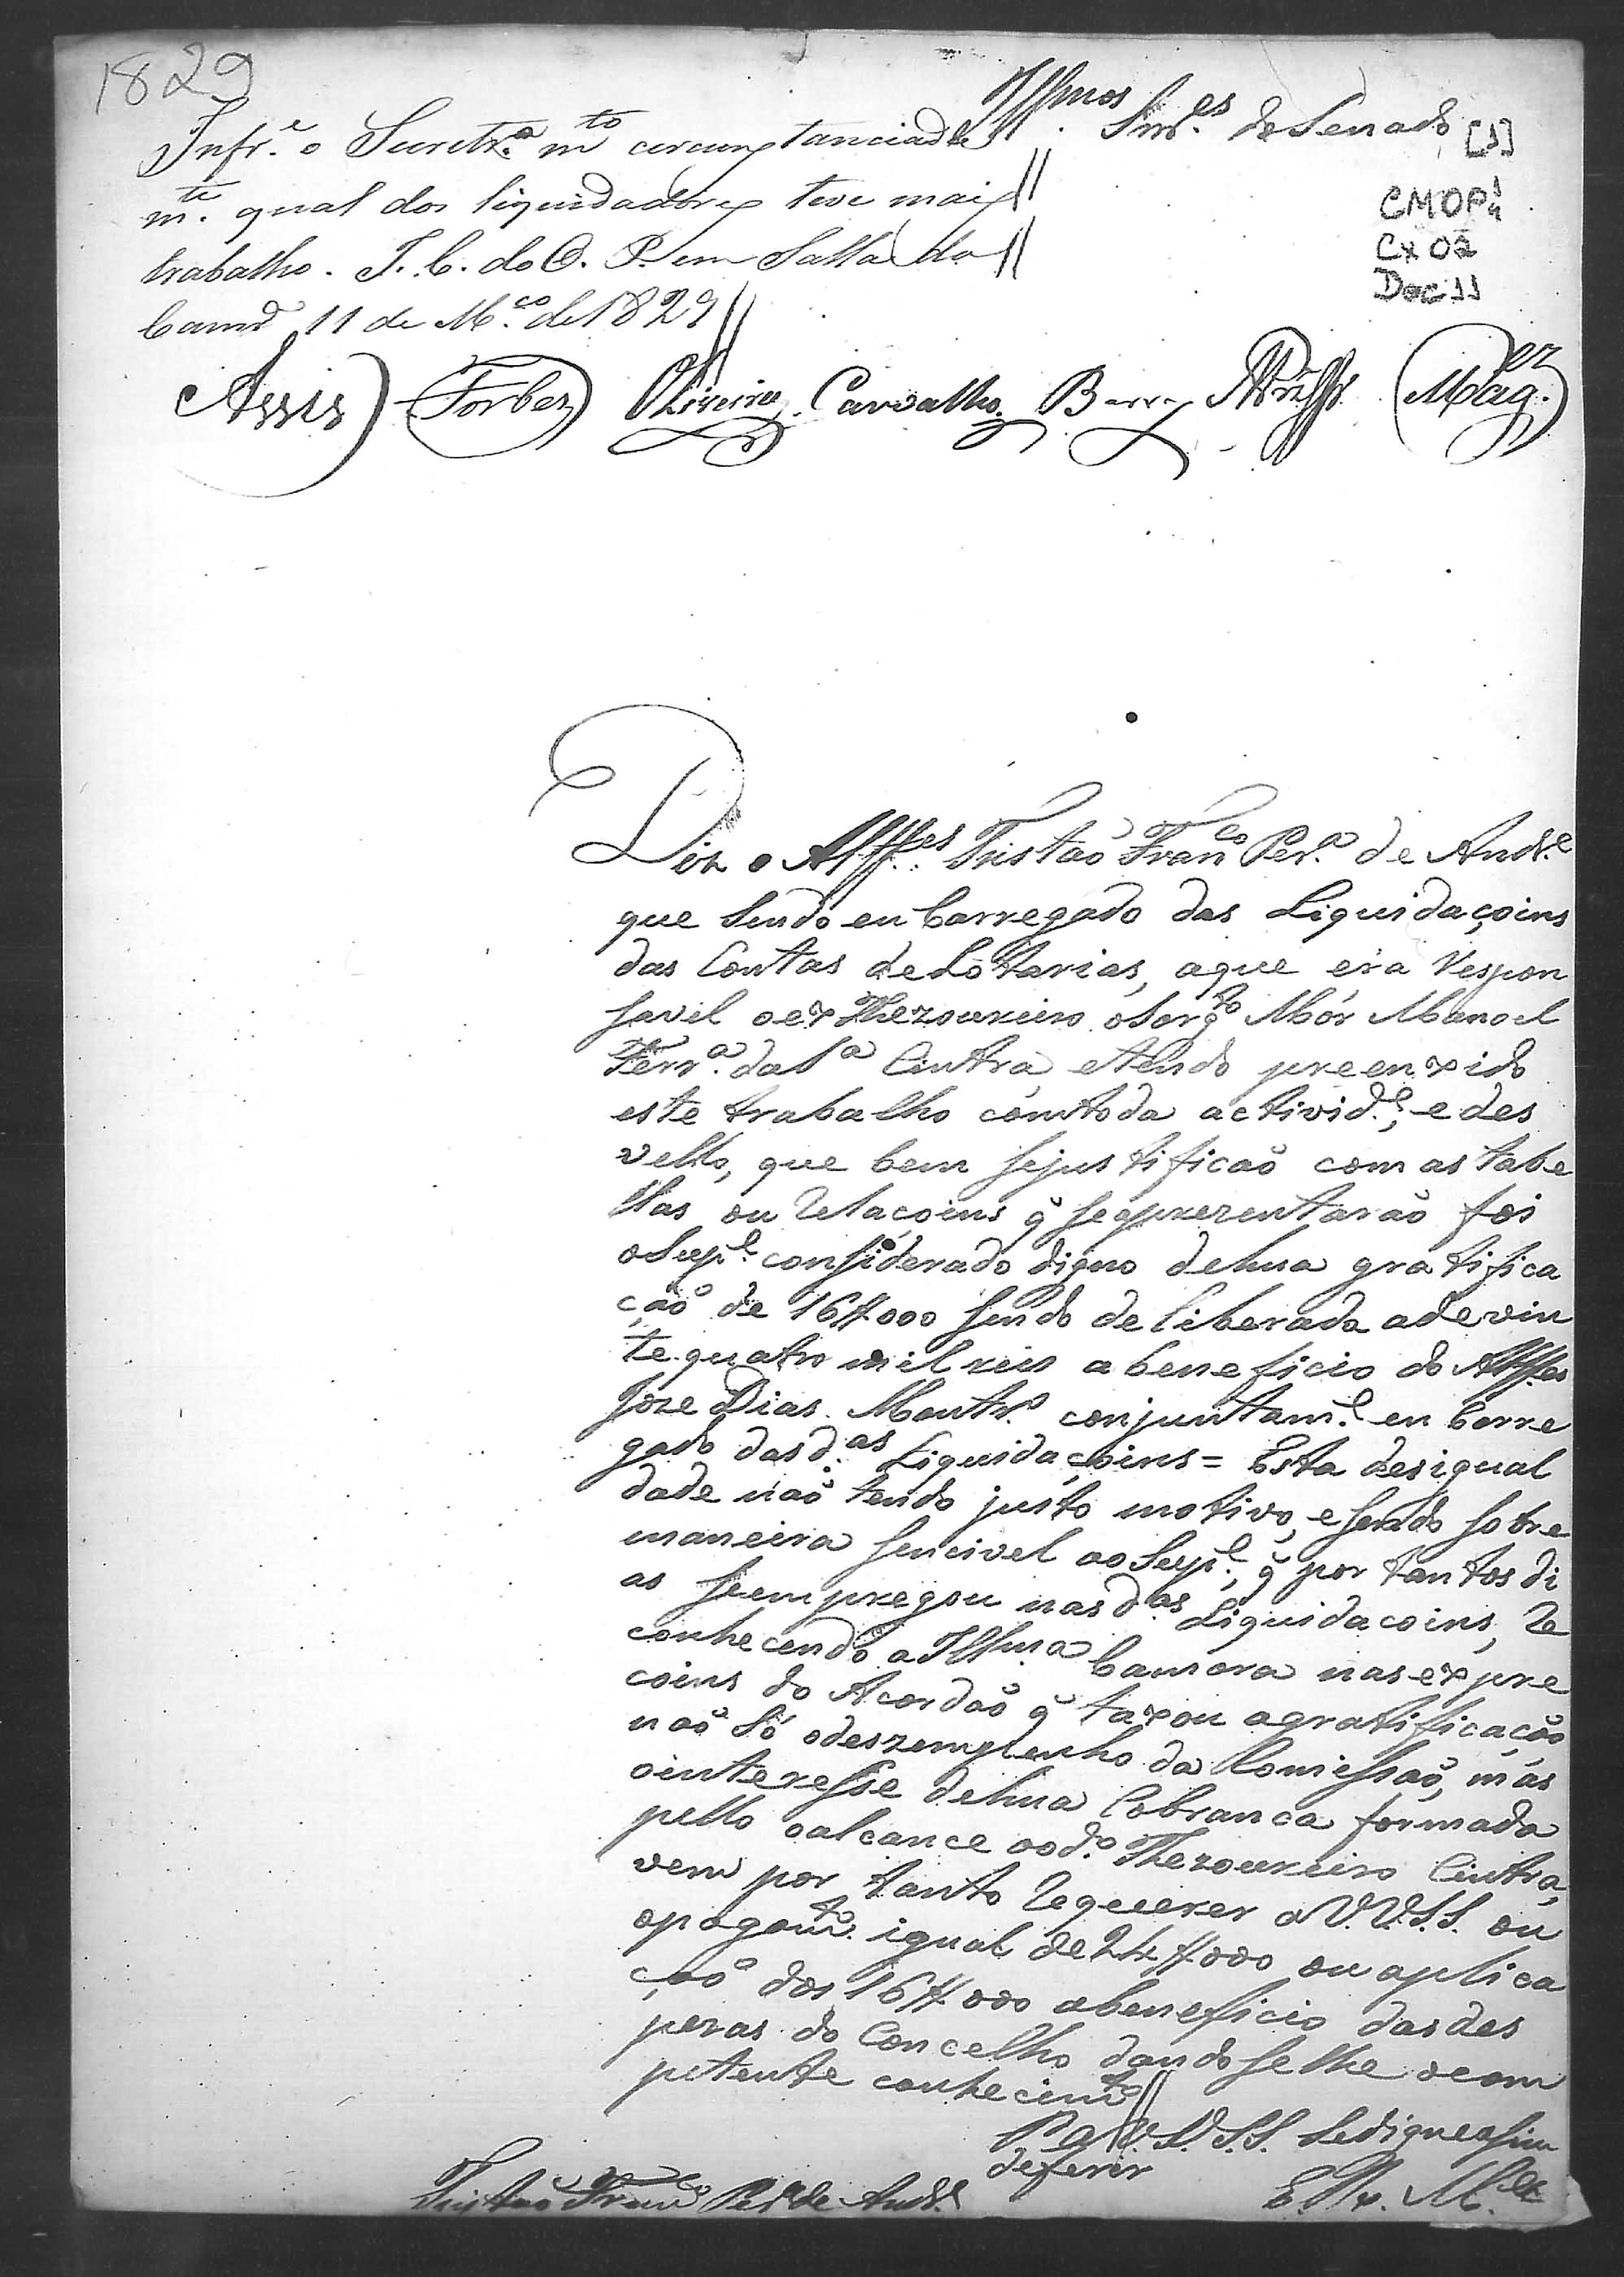 1829
Illmos Snr.es do Senado
[1]
CMOP
Cx 02
Doc 11
Infr.e o Secretr.o m.to circunstanciada
m.te qual dos liquidadores teve mais
trabalho. I. C. do O. P. em Salla da
Camr.a 11 de M.ço de 1829
Assis Forbes Oliveira Carvalho Mag.es
Diz o Alff.es Tristão Fran.co Per.a de Andr.e
que sendo encarregado das Liquidaçoins
das Contas de Lotarias, aque era respon
savel o ex Thezoureiro o Sarg.to Mór Manoel
Ferr.a da S.a Cintra, etendo preenxido
este trabalho com toda activid.e, e des
vello, que bem sejustificaõ com as tabe
llas ou relaçoins q̃ se aprezentaraõ foi
o Sup.e considerado digno de hua gratifica
çaõ de 16$000 sendo deliberada a de vin
te quatro mil reis a beneficio do Alff.es
Joze Dias Montr.o conjuntam.e encarre
gado das d.as Liquidaçoins = Esta desigual
dade naõ tendo justo motivo, e sendo sobre
maneira sencivel ao Sup.e, q̃ por tantos di
as seempregou nas d.as Liquidacoins, re
conhecendo a Illm.a Camara nas expre
coins do Acordaõ q̃ taxou agratificação
naõ só odeszempenho da Comissaõ, mas
ointeresse de hua Cobranca formada
pello oalcance ao d.o Thezoureiro Cintra,
vem por tanto requerer a V.V.S.S. ou
opagam.to igual de 24$000 ou aplica
çaõ dos 16$000 abeneficio das des
pezas do Concelho dandoselhe ocom
petente conhecim.to
P. a V.V.S.S. sedigne assim
deferir
E. R. M.ce
Tristaõ Fran.co Per.a de Andr.e